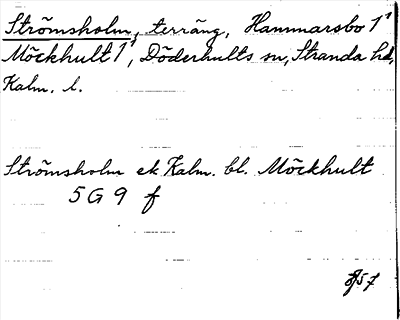 Strömsholm, terräng, Hammarsbo 1¹
Möckhult 1¹, Döderhults sn, Stranda hd,
Kalm. l.
Strömsholm ek Kalm. bl. Möckhult
5 G 9 f
57